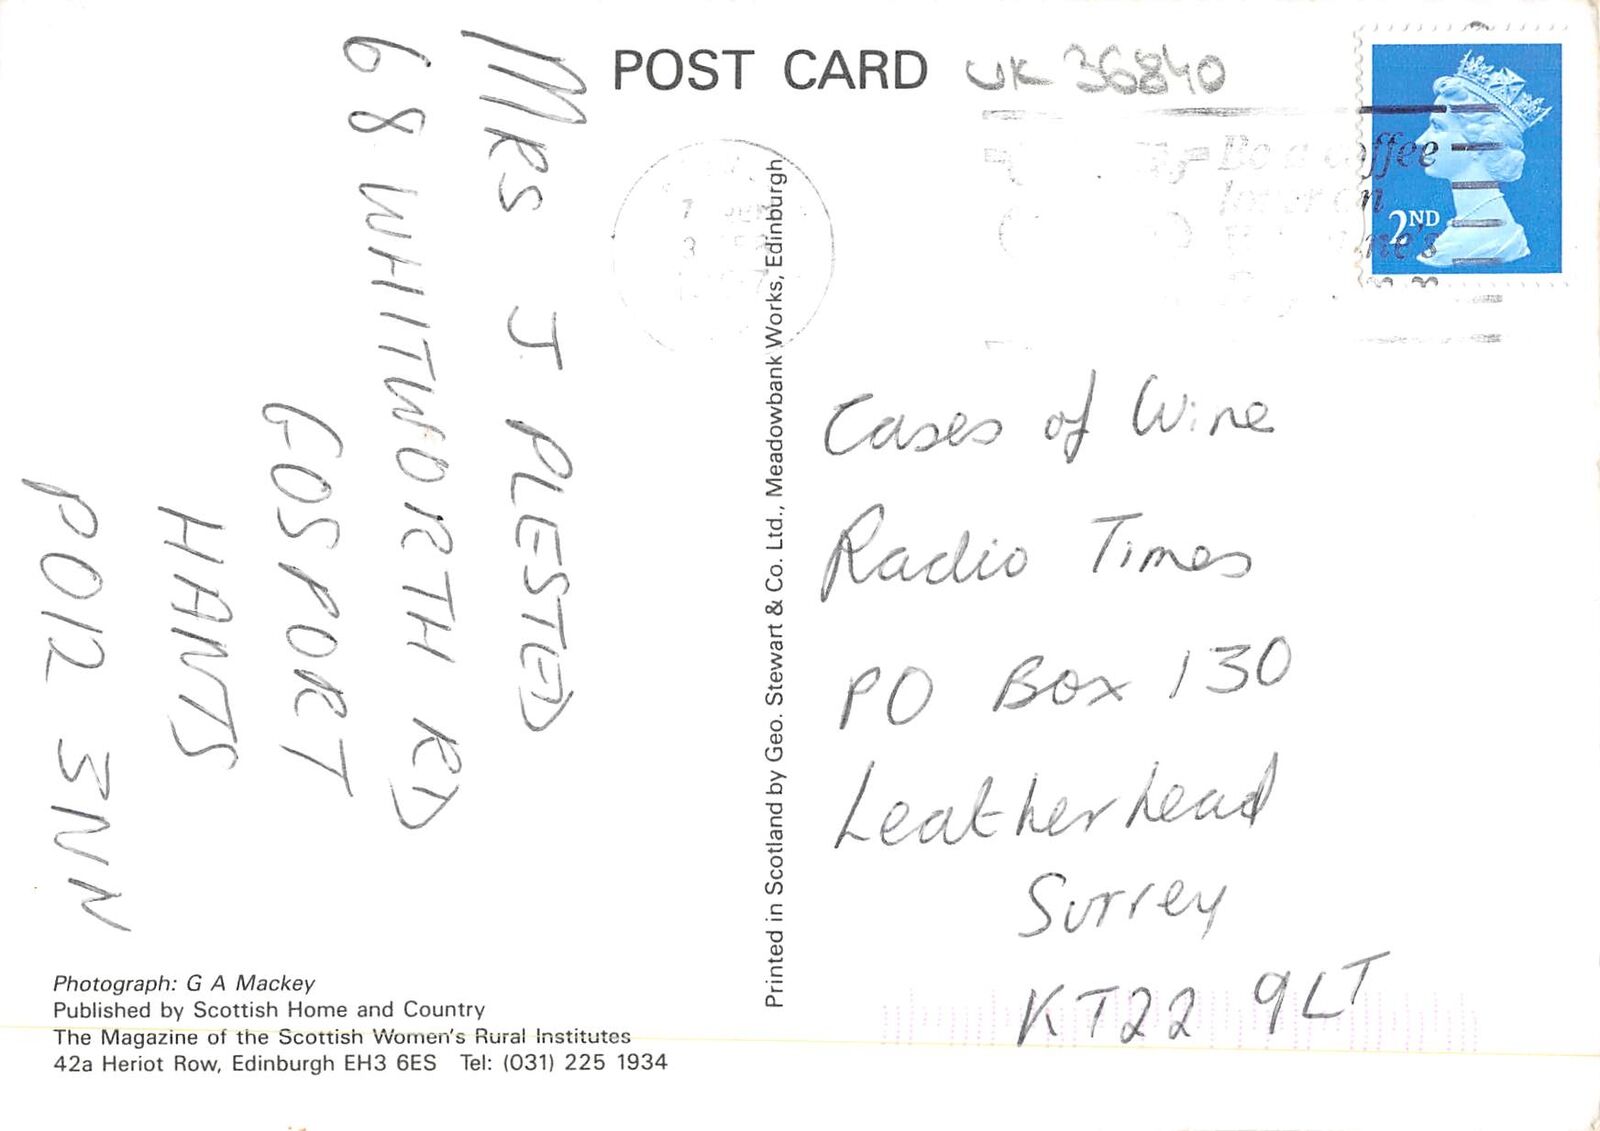 POST CARD
UK 36840
MRS J PLESTED
68 WHITWORTH RD
GOSPORT
HANTS
PO12 3NN
Photograph: G A Mackey
Published by Scottish Home and Country
The Magazine of the Scottish Women's Rural Institutes
42a Heriot Row, Edinburgh EH3 6ES Tel: (031) 225 1934
Printed in Scotland by Geo. Stewart & Co. Ltd., Meadowbank Works, Edinburgh
Be a coffee
lover on
2ND
Cases of Wine
Radio Times
PO Box 130
Leatherhead
Surrey
KT22 9LT